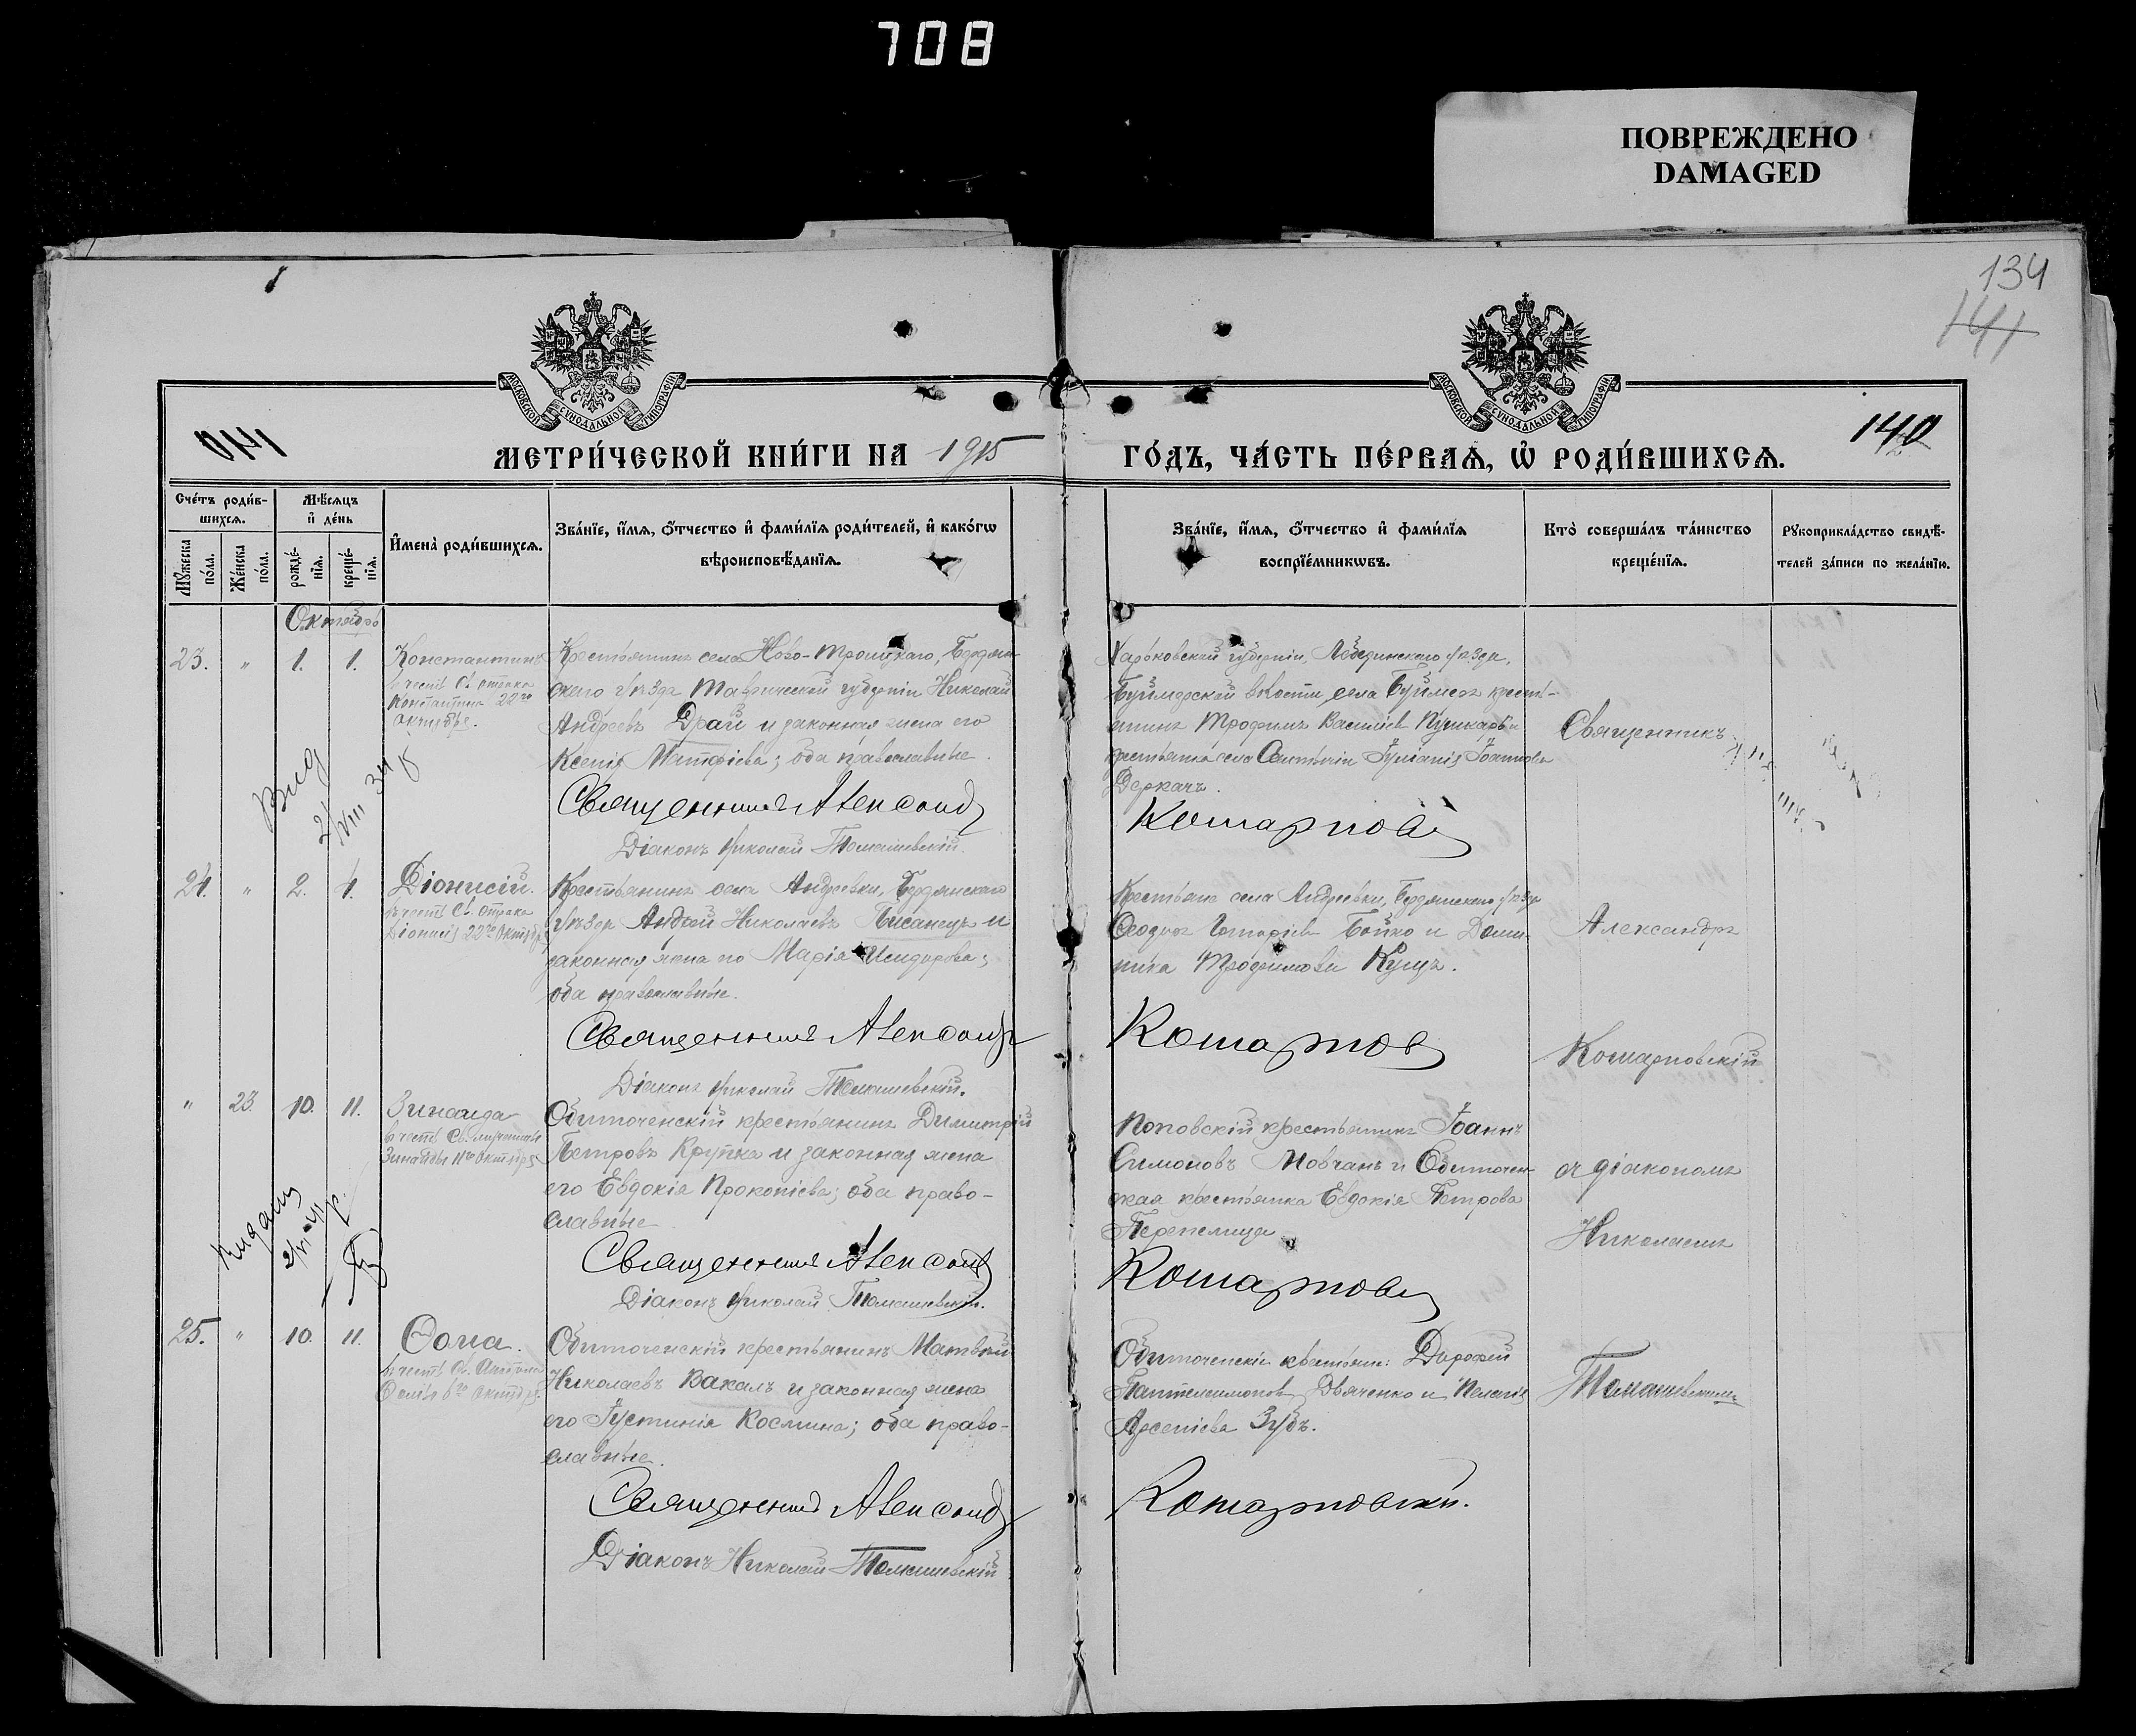 708
ПОВРЕЖДЕНО
DAMAGED
134
141
140
МОСКОВСКОЙ СѴНОДАЛЬНОЙ ТИПОГРАФІИ
МОСКОВСКОЙ СѴНОДАЛЬНОЙ ТИПОГРАФІИ
МЕТРИ́ЧЕСКОЙ КНИ́ГИ НА 1915
ГО́ДЪ, ЧА́СТЬ ПЕ́РВАѦ, Ѡ҆ РОДИ́ВШИХСѦ.
140
Сче́тъ роди́в-
шихсѧ.
Мѣ́сѧцъ
и҆ де́нь
Мꙋ́жеска
по́ла.
Же́нска
по́ла.
рожде́-
нїѧ.
креще́-
нїѧ.
И҆мена̀ роди́вшихсѧ.
Зва́нїе, и҆́мѧ, ѻ҆́тчество и҆ фами́лїѧ роди́телей, и҆ како́гѡ
вѣроисповѣ́данїѧ.
Зва́нїе, и҆́мѧ, ѻ҆́тчество и҆ фами́лїѧ
воспрїе́мникѡвъ.
Кто̀ соверша́лъ та́инство
креще́нїѧ.
Рꙋкоприкла́дство свидѣ́-
телей за́писи по жела́нїю.
Октябрь
23. " 1. 1. Константинъ
въ честь Св. отрока
Константина 22го
октября.
Крестьянинъ села Ново-Троицкаго, Бердян-
скаго уѣзда Таврической губерніи Николай
Андреевъ Драй и законная жена его
Ксенія Матфіева; оба православные.
Священникъ Александр
Діаконъ Николай Томашевскій.
Харьковской губерніи, Лебединскаго уѣзда,
Буймерской волости, села Буймера кресть-
янинъ Трофимъ Васильевъ
крестьянка села Іуліанія Іоаннова
Деркачъ.
Кошарнов
Священникъ
24. " 2. 4. Діонисій.
въ честь Св. отрока
Діонисія 22го Октября
Крестьянинъ села Андреевки, Бердянскаго
уѣзда Андрей Николаевъ Писанецъ и
законная жена его Марія Исидорова;
оба православные.
Священникъ Александр
Діаконъ Николай Томашевскій.
Крестьяне села Андреевки, Бердянскаго уѣзда
Ѳеодоръ Бойко и Домни-
кія Трофимова Кущъ.
Кошарнов
Александръ
Кошарновскій
" 23. 10. 11. Зинаида
въ честь Св. мученицы
Зинаиды 11го Октября
Обиточенскій крестьянинъ Димитрій
Петровъ Крупка и законная жена
его Евдокія Прокопіева; оба право-
славные.
Священникъ Александр
Діаконъ Николай Томашевскій.
Поповскій крестьянинъ Іоаннъ
Симоновъ Мовчанъ и Обиточен-
ская крестьянка Евдокія Петрова
Перепелица
Кошарнов
съ діакономъ
Николаемъ
25. " 10. 11. Ѳома.
въ честь Св. Апостола
Ѳомы 6го Октября.
Обиточенскій крестьянинъ Матвей
Николаевъ Вакалъ и законная жена
его Іустинія Космина; оба право-
славные.
Священникъ Александр
Діаконъ Николай Томашевскій
Обиточенскіе крестьяне: Дорофей
Пантелеимоновъ Дьяченко и Пелагія
Арсеніева Зубъ.
Кошарновскій.
Томашевскимъ